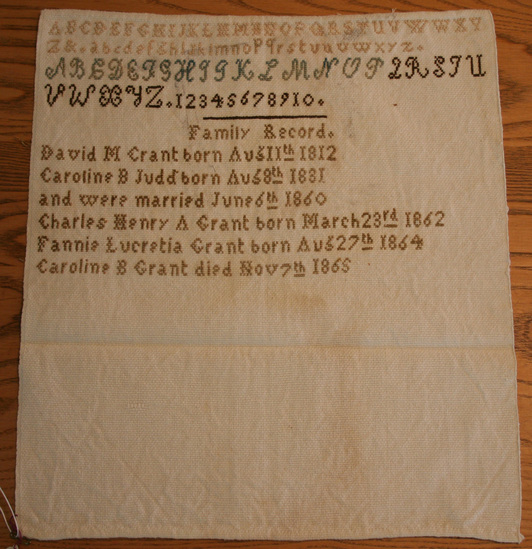 ABCDEFGHIJKLEMENOPQRSTUVWWXY
Z&.abcdefghijklmnopqrstuvwxyz.
ABCDEFGHIJKLMNOPQRSTU
VWXYZ.12345678910.
Family Record.
David M Grant born Aug11th 1812
Caroline B Judd born Aug8th 1831
and were married June6th 1860
Charles Henry A Grant born March23rd 1862
Fannie Lucretia Grant born Aug27th 1864
Caroline B Grant died Nov7th 1865